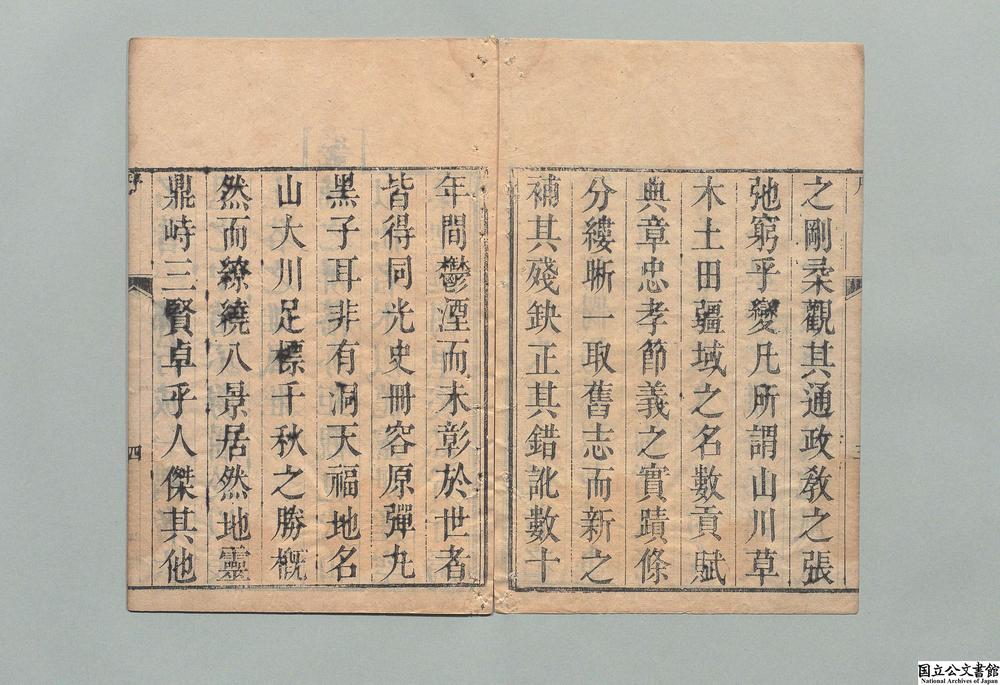 之剛柔觀其通政敎之張
弛窮乎變凡所謂山川草
木土田疆域之名數貢賦
典章忠孝節義之實蹟條
分縷晰一取舊志而新之
補其殘缺正其錯訛數十
年間鬱湮而未彰於世者
皆得同光史冊容原彈丸
黑子耳非有洞天福地名
山大川足標千秋之勝概
然而繚繞八景居然地靈
鼎峙三賢卓乎人傑其他
序
四
国立公文書館
National Archives of Japan